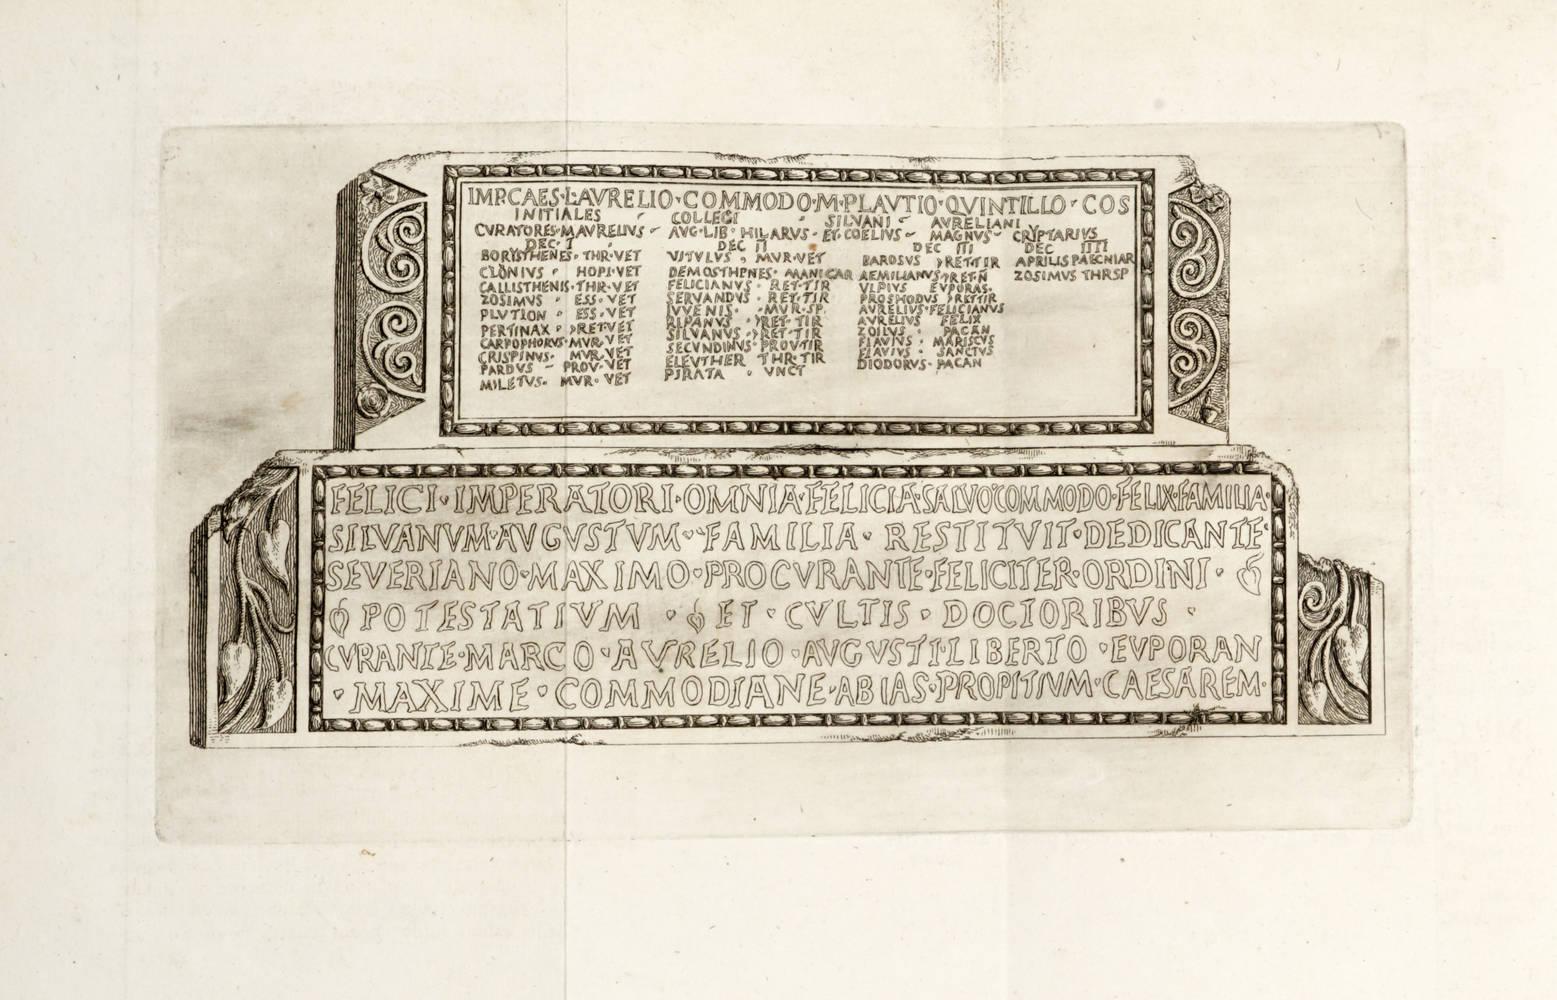 IMP·CAES·L·AVRELIO·COMMODO·M·PLAVTIO·QVINTILLO·COS
INITIALES COLLEGI SILVANI AVRELIANI
CVRATORES·M·AVRELIVS AVG·LIB·HILARVS·ET·COELIVS MAGNVS CRYPTARIVS
DEC·I
BORYSTHENES·THR·VET
CLONIVS HOPL·VET
CALLISTHENIS·THR·VET
ZOSIMVS ESS·VET
PLVTION ESS·VET
PERTINAX ƆRET·VET
CARPOPHORVS·MVR·VET
CRISPINVS·MVR·VET
PARDVS PROV·VET
MILETVS·MVR·VET
DEC II
VITVLVS MVR·VET
DEMOSTHENES·MANICAR
FELICIANVS·RET·TIR
SERVANDVS·RET·TIR
IVVENIS·MVR·SP
RIPANVS ƆRET·TIR
SILVANVS·ƆRET·TIR
SECVNDINVS·PROV·TIR
ELEVTHER THR·TIR
PIRATA VNCT
DEC III
BAROSVS ƆRETTIR
AEMILIANVS
VLPIVS EVPORAS
PROSHODVS ƆRETTIR
AVRELIVS·FELICIANVS
AVRELIVS FELIX
ZOILVS PAGAN
FLAVIVS MARISCVS
FLAVIVS SANCTVS
DIODORVS·PAGAN
DEC IIII
APRILIS PAEGNIAR
ZOSIMVS THRSP
FELICI·IMPERATORI·OMNIA·FELICIA·SALVO·COMMODO·FELIX·FAMILIA·
SILVANVM·AVGVSTVM·FAMILIA·RESTITVIT·DEDICANTE·
SEVERIANO·MAXIMO·PROCVRANTE·FELICITER·ORDINI·
POTESTATIVM · ET·CVLTIS·DOCTORIBVS·
CVRANTE·MARCO·AVRELIO·AVGVSTI·LIBERTO·EVPORAN
·MAXIME·COMMODIANE·AB IAS·PROPITIVM·CAESAREM·